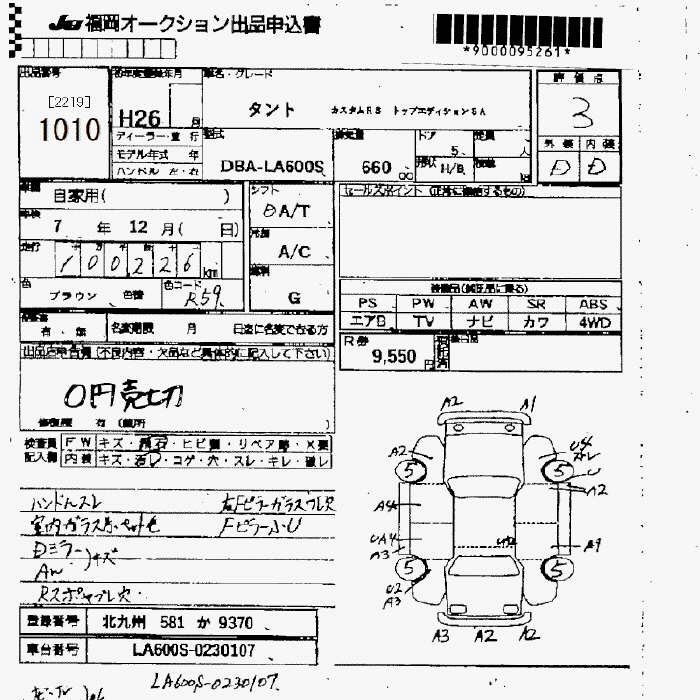 JU福岡オークション出品申込書
*9000095261*
出品番号 初年度登録年月 車名・グレード 評価点
[2219]
1010
H26 月
タント カスタムRS トップエディションSA
3
ディーラー・並行
モデル年式 年
ハンドル 左・右
型式
DBA-LA600S
排気量
660 cc
ドア
5
形状 H/B
定員 人
積載 kg
外装 内装
D D
車歴
自家用( )
シフト
DA/T
セールスポイント
車検
7 年 12 月( 日)
冷房
A/C
走行
100226 km
燃料
G
色
ブラウン 色替
色コード
R59
装備品(純正品に限る)
PS PW AW SR ABS
エアB TV ナビ カワ 4WD
有・無
名変期限 月 日迄に名変できる方
R券
9,550 円
出品店申告欄(不良内容・欠品など具体的に記入して下さい)
0円売切
修復歴 有(箇所 )
検査員記入欄
FW キズ・飛石・ヒビ・リペア跡・X要
内装 キズ・汚・コゲ・穴・スレ・キレ・破レ
ハンドルスレ
Dミラー
AW
キズ
A2 A1
A2 U4
5 5
U
A2
A4
UA4
A3
A1
5 5
U2
A3
A3 A2 A2
登録番号 北九州 581 か 9370
車台番号 LA600S-0230107
LA600S-0230107